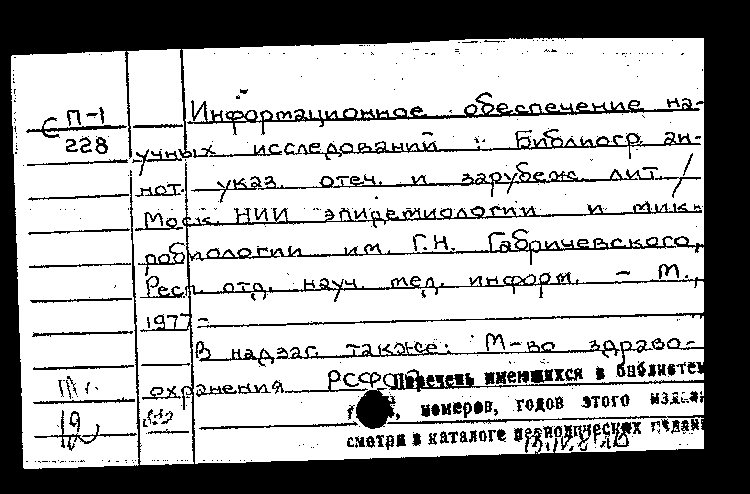 С П-1
228
Информационное обеспечение на-
учных исследований : Библиогр. ан-
нот. указ. отеч. и зарубеж. лит. /
Моск. НИИ эпидемиологии и мик-
робиологии им. Г.Н. Габричевского,
Респ. отд. науч. мед. информ. - М.,
1977 -
В надзаг. также: М-во здраво-
охранения РСФСР
Перечень имеющихся в библиотек
номеров, годов этого издан
смотри в каталоге периодических издани